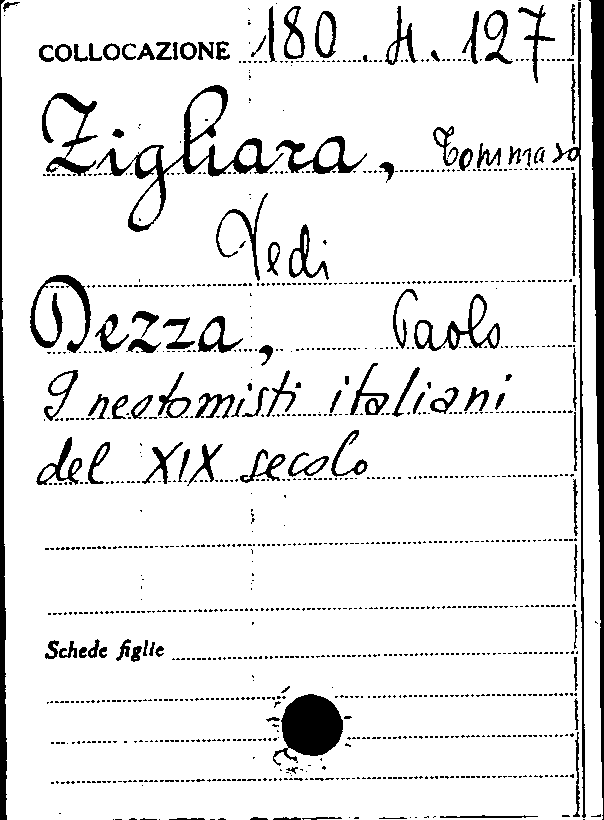 COLLOCAZIONE 180.H.127
Zigliara, Tommaso
Vedi
Dezza, Paolo
I neotomisti italiani
del XIX secolo
Schede figlie